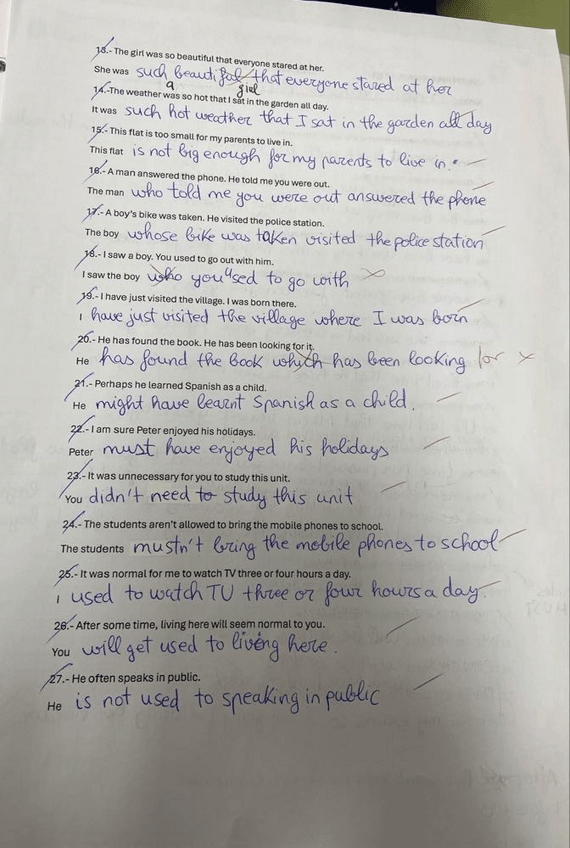 13.- The girl was so beautiful that everyone stared at her.
She was such beautiful that everyone stared at her
a girl
14.-The weather was so hot that I sat in the garden all day.
It was such hot weather that I sat in the garden all day
15.- This flat is too small for my parents to live in.
This flat is not big enough for my parents to live in.
16.- A man answered the phone. He told me you were out.
The man who told me you were out answered the phone
17.- A boy's bike was taken. He visited the police station.
The boy whose bike was taken visited the police station
18.- I saw a boy. You used to go out with him.
I saw the boy who you used to go with
19.- I have just visited the village. I was born there.
I have just visited the village where I was born
20.- He has found the book. He has been looking for it.
He has found the book which has been looking for x
21.- Perhaps he learned Spanish as a child.
He might have learnt Spanish as a child.
22.- I am sure Peter enjoyed his holidays.
Peter must have enjoyed his holidays
23.- It was unnecessary for you to study this unit.
You didn't need to study this unit
24.- The students aren't allowed to bring the mobile phones to school.
The students mustn't bring the mobile phones to school
25.- It was normal for me to watch TV three or four hours a day.
I used to watch TV three or four hours a day.
26.- After some time, living here will seem normal to you.
You will get used to living here.
27.- He often speaks in public.
He is not used to speaking in public